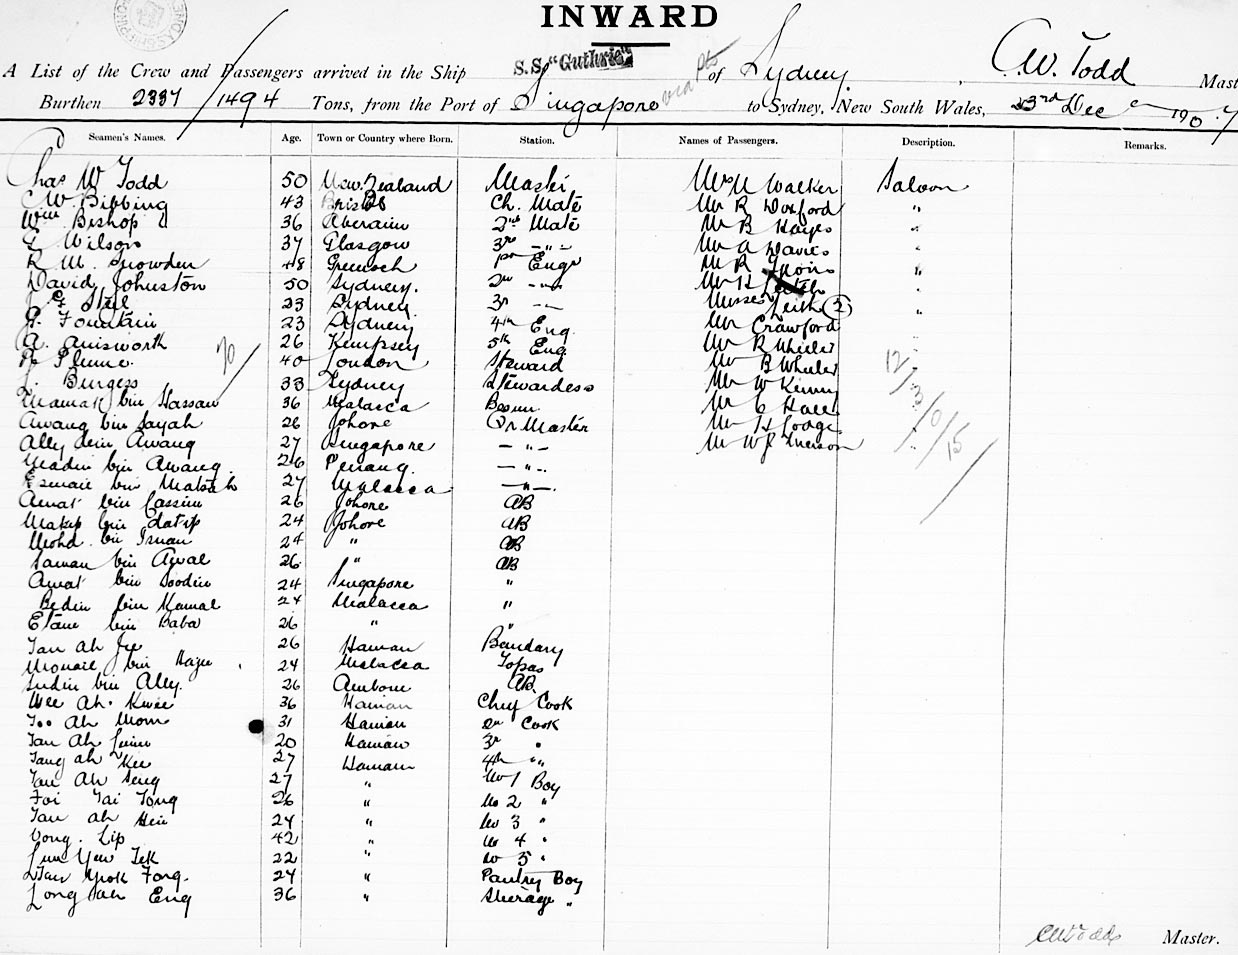 INWARD
A List of the Crew and Passengers arrived in the Ship S.S. "Guthrie" of Sydney, C.W. Todd Mast
Burthen 2337/1494 Tons, from the Port of Singapore via pts to Sydney, New South Wales, 23rd Dec 1907
Seamen's Names. Age. Town or Country where Born. Station. Names of Passengers. Description. Remarks.
Chas W Todd 50 New Zealand Master Mr Walker Saloon
C.W. Bibbing 43 Bristol Ch. Mate Mr R Doxford "
Wm Bishop 36 2nd Mate Mr B Hayes "
E Wilson 37 Glasgow 3rd -"- Mr A Davies "
R M Snowden 48 Greenock 1st Engr Mr R "
David Johnston 50 Sydney. 2nd -"- Mr H "
J G 23 Sydney 3r -"- Misses Leith (2) "
G. Fountain 23 Sydney 4th Eng. Mr Crawford
A. Ainsworth 26 Kempsey 5th Eng Mr R Wheeler
Plume 40 London Steward Mr B Wheeler
J. Burgess 33 Sydney Stewardess Mr W Kenny
bin Hassan 36 Malacca Mr C Hall
Awang bin 26 Johore Qr Master Mr H Lodge
Ally dein Awang 27 Singapore -"- Mr W J "
bin Awang. 26 Penang. -"-
bin 27 Malacca -"-
Amat bin Cassim 26 Johore AB
bin 24 Johore AB
Mohd. bin 24 " AB
Saman bin Awal 26 " AB
Amat bin Doodin 24 Singapore "
Bedin bin Kamal 24 Malacca "
Etam bin Baba 26 " "
Tan Ah Jee 26 Hainan Bandary
bin 24 Malacca Topas
bin Ally. 26 AB
Wee Ah Kwee 36 Hainan Chief Cook
Too Ah Mom 31 Hainan 2n Cook
Tan Ah 20 Hainan 3r "
Tang ah Kee 27 Hainan 4th "
Tan Ah Seng 27 " No 1 Boy
Foi Tai Tong 26 " No 2 "
Tan ah Hin 24 " No 3 "
Vong. Lip 42 " No 4 "
Yew Tek 22 " No 5 "
Tan Fong. 24 " Pantry Boy
Long Eng 36 " Steerage "
70/
12/33/0/15/
CW Todd Master.